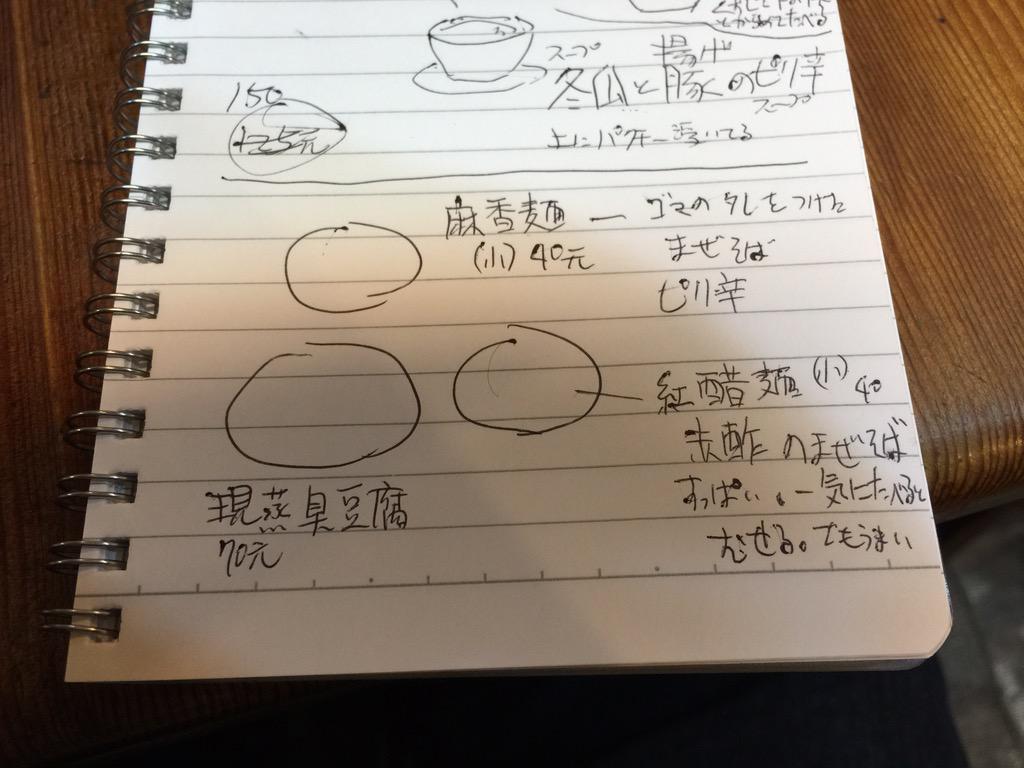 とかためてたべる
スープ 揚げ
冬瓜と豚のピリ辛
スープ
上にパクチー浮いてる
150
元
麻香麺 ー ゴマのタレをつけた
(小) 40元 まぜそば
ピリ辛
紅醋麺 (小) 40
赤酢のまぜそば
すっぱい。一気にたべると
むせる。でもうまい
現蒸臭豆腐
70元